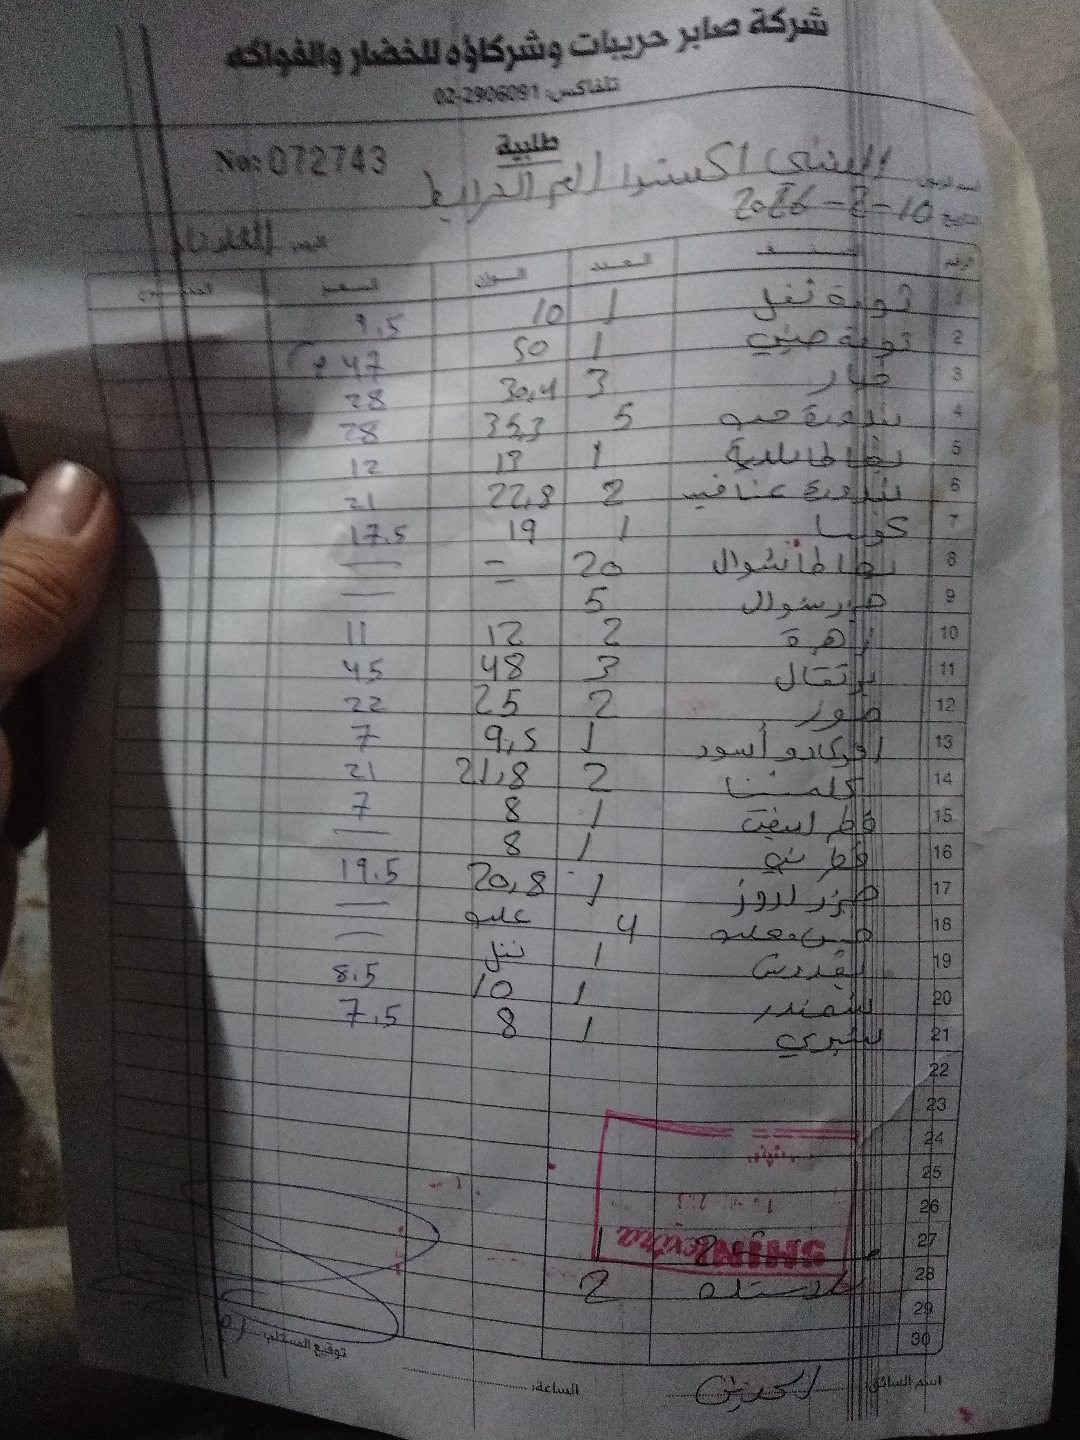 شركة صابر حريبات وشركاؤه للخضار والفواكه
تلفاكس: 02-2906091
طلبية
No: 072743
اكسترا ام الشرايط
التاريخ 10-2-2026
اليوم الثلاثاء
الرقم الصنف العدد الوزن السعر
1 ثومة نخل 1 10 9.5
2 ثومة صيني 1 50 47
3 خيار 3 30,4 28
4 بندورة حبه 5 35,3 28
5 بطاطا بلدية 1 13 12
6 بندورة عناقيد 2 22,8 21
7 كوسا 1 19 17.5
8 بطاطا شوال 20 =
9 شوال 5
10 زهرة 2 12 11
11 برتقال 3 48 45
12 موز 2 25 22
13 افوكادو أسود 1 9,5 7
14 كلمنتينا 2 21,8 21
15 فطر ابيض 1 8 7
16 فطر بني 1 8
17 1 20,8 19.5
18 4 علبه
19 بقدونس 1
20 شمندر 1 10 8.5
21 1 8 7.5
22
23
24
25
26
27
28 2
29
30
SHINE extra
اسم السائق:
الساعة:
توقيع المستلم: